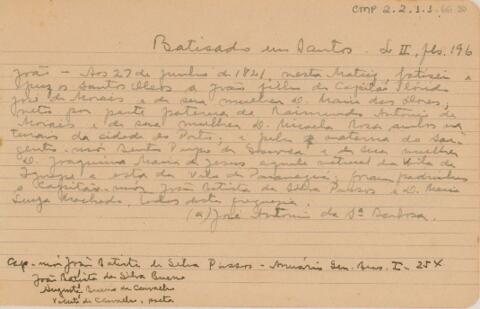 CMP 2.2.1.1.66.20
Batisado em Santos - L II, fls. 196
João - Aos 27 de junho de 1821, nesta Matriz, batisei e
puz os Santos Oleos a João filho do Capitão
José de Morais e de sua mulher D. Maria das Dores,
neto por parte paterna de Raimundo Antonio de
Morais e de sua mulher D. Micaela Rosa ambos na
turaes da cidade do Porto, e pela materna do Sar
gento-mór Bento
D. Joaquina Maria de Jesus aquele natural da Vila de
Iguape e esta da Vila de Paranaguá; foram padrinhos
o Capitão-mór João Batista da Silva Passos e D. Maria
Luiza Machado, todos desta freguezia.
(a) José Antonio da Sª Barbosa.
Cap-mór João Batista da Silva Passos - Anuário Gen. Bras. I - 254
João Batista da Silva Bueno
Augusto Bueno de Carvalho
Vicente de Carvalho, poeta